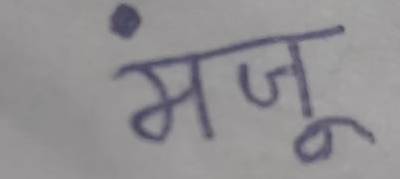 मंजू